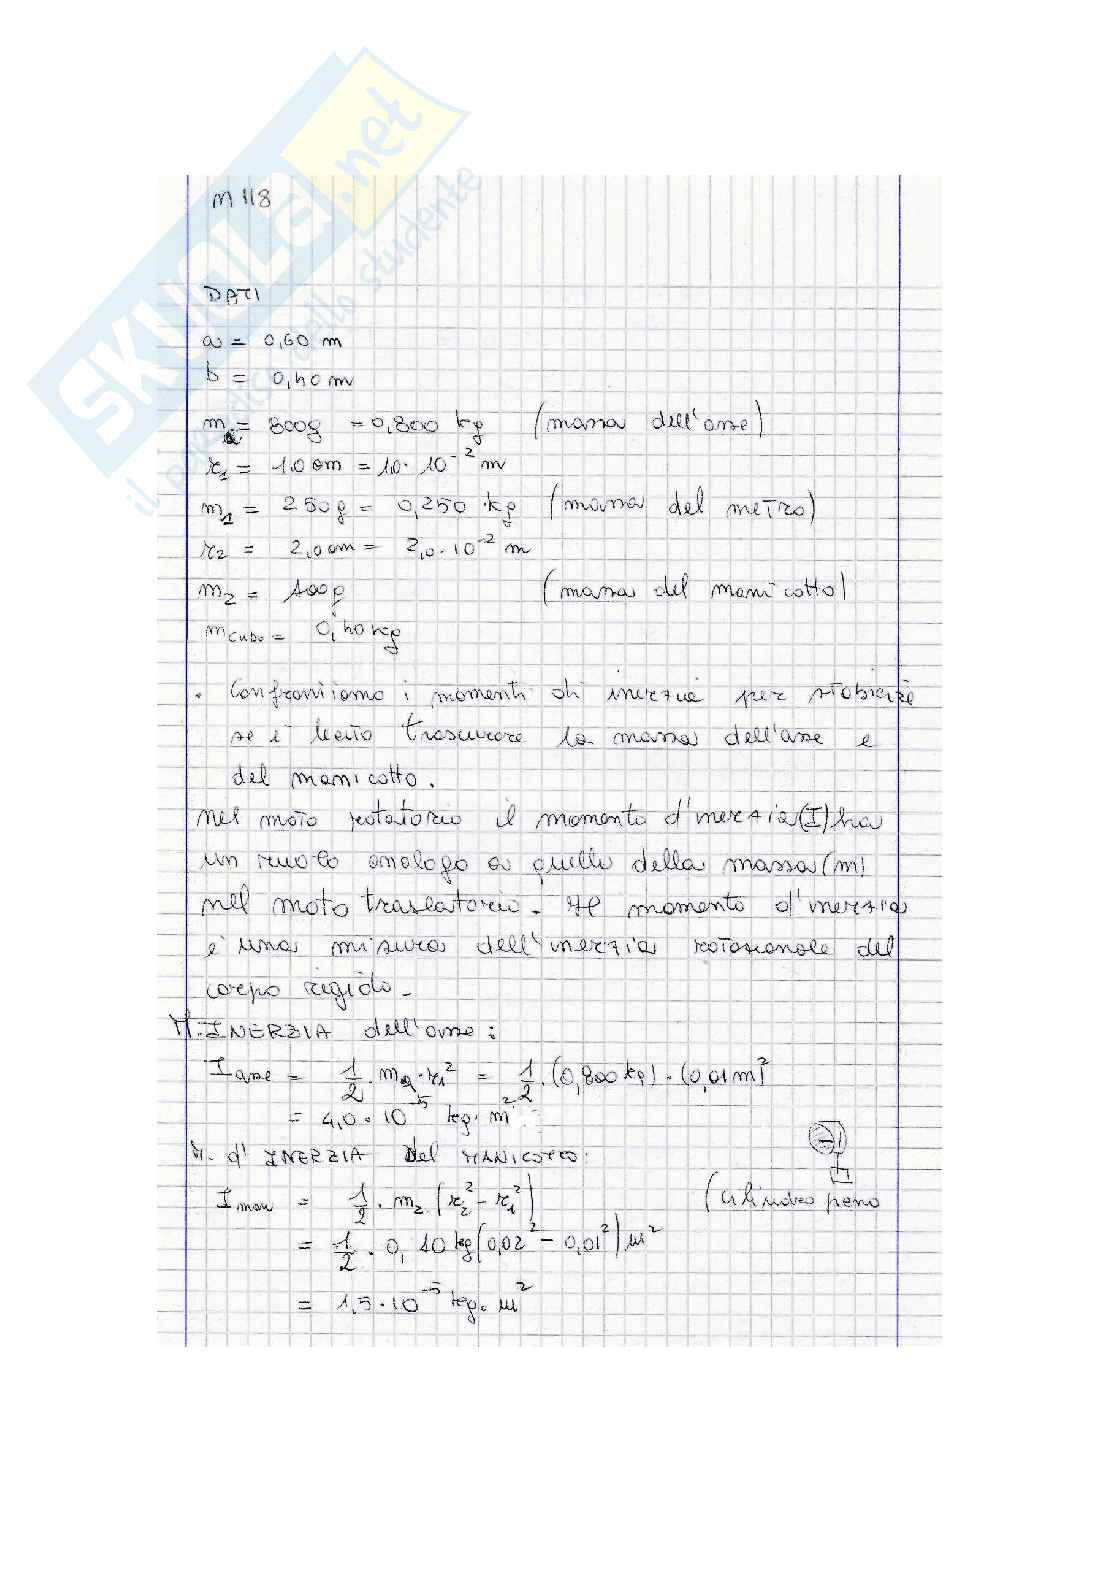 SKUOLA.net
il paradiso dello studente
n 118
DATI
a = 0,60 m
b = 0,40 m
ma = 800g = 0,800 kg (massa dell'asse)
r1 = 1,0 cm = 1,0 · 10^-2 m
m1 = 250g = 0,250 · kg (massa del metro)
r2 = 2,0 cm = 2,0 · 10^-2 m
m2 = 100g (massa del manicotto)
mcubo = 0,40 kg
• Confrontiamo i momenti di inerzia per stabilire
se è lecito trascurare la massa dell'asse e
del manicotto.
nel moto rotatorio il momento d'inerzia (I) ha
un ruolo analogo a quello della massa (m)
nel moto traslatorio. Il momento d'inerzia
è una misura dell'inerzia rotazionale del
corpo rigido.
M. INERZIA dell'asse:
I asse = 1/2 · ma · r1^2 = 1/2 · (0,800 kg) · (0,01 m)^2
= 4,0 · 10^-5 kg · m^2
M. d'INERZIA del MANICOTTO:
I man = 1/2 · m2 (r2^2 - r1^2) (cilindro pieno
= 1/2 · 0,10 kg (0,02^2 - 0,01^2) m^2
= 1,5 · 10^-5 kg · m^2